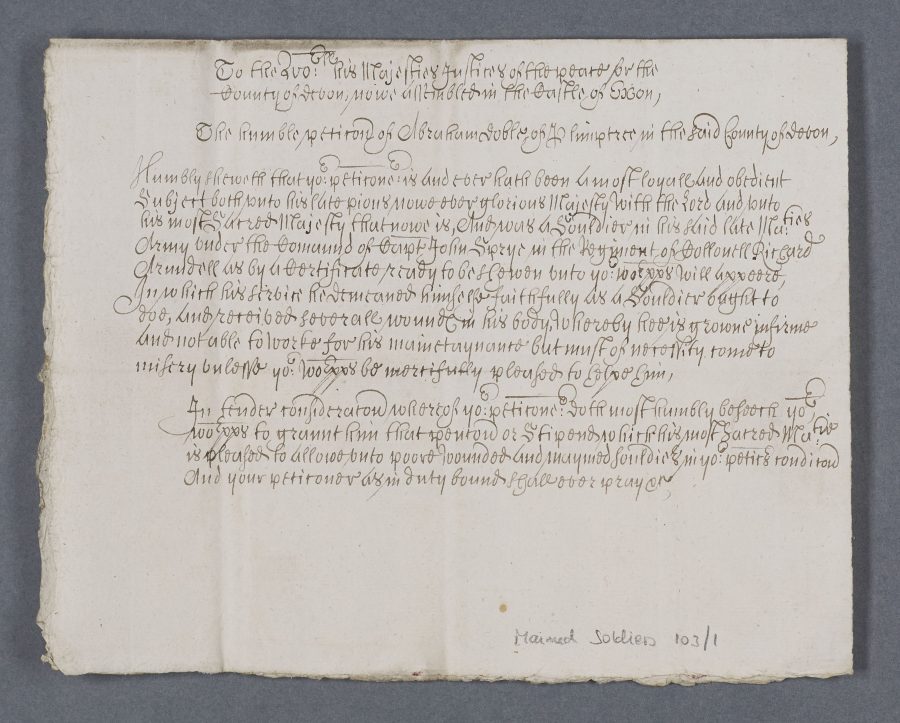 To the Wor:ble his Majesties Justices of the peace for the
County of Devon, nowe assembled in the Castle of Exon,
The humble peticon of Abraham Dobles of Plimptree in the said County of Devon,
Humbly sheweth that yor: peticoner: is and ever hath been a most loyall and obedient
Subject both unto his late pious nowe ever glorious Majesty with the Lord and unto
his most Sacred Majesty that nowe is, And was a Souldier in his said late Maties
Army under the Comannd of Capt: John Sprye in the Regiment of Collonell Richard
Arundell as by a Certificate ready to be shewen unto yor: worpps will appeere,
In which his service he demeaned himselfe faithfully as a Souldier ought to
doe, and received severall wounds in his body, whereby hee is growne infirme
and not able to worke for his mainetaynance but must of necessity come to
misery unlesse yor: Worpps be mercifully pleased to helpe him,
In tender consideracon whereof yor: peticoner: doth most humbly beseech yor
worpps to graunt him that pencon or Stipend which his most Sacred Matie
is pleased to allowe unto poore wounded and maymed souldiers in yor: peticrs condicon
And your peticoner as in duty bound shall ever pray &c,
Maimed Soldiers 103/1